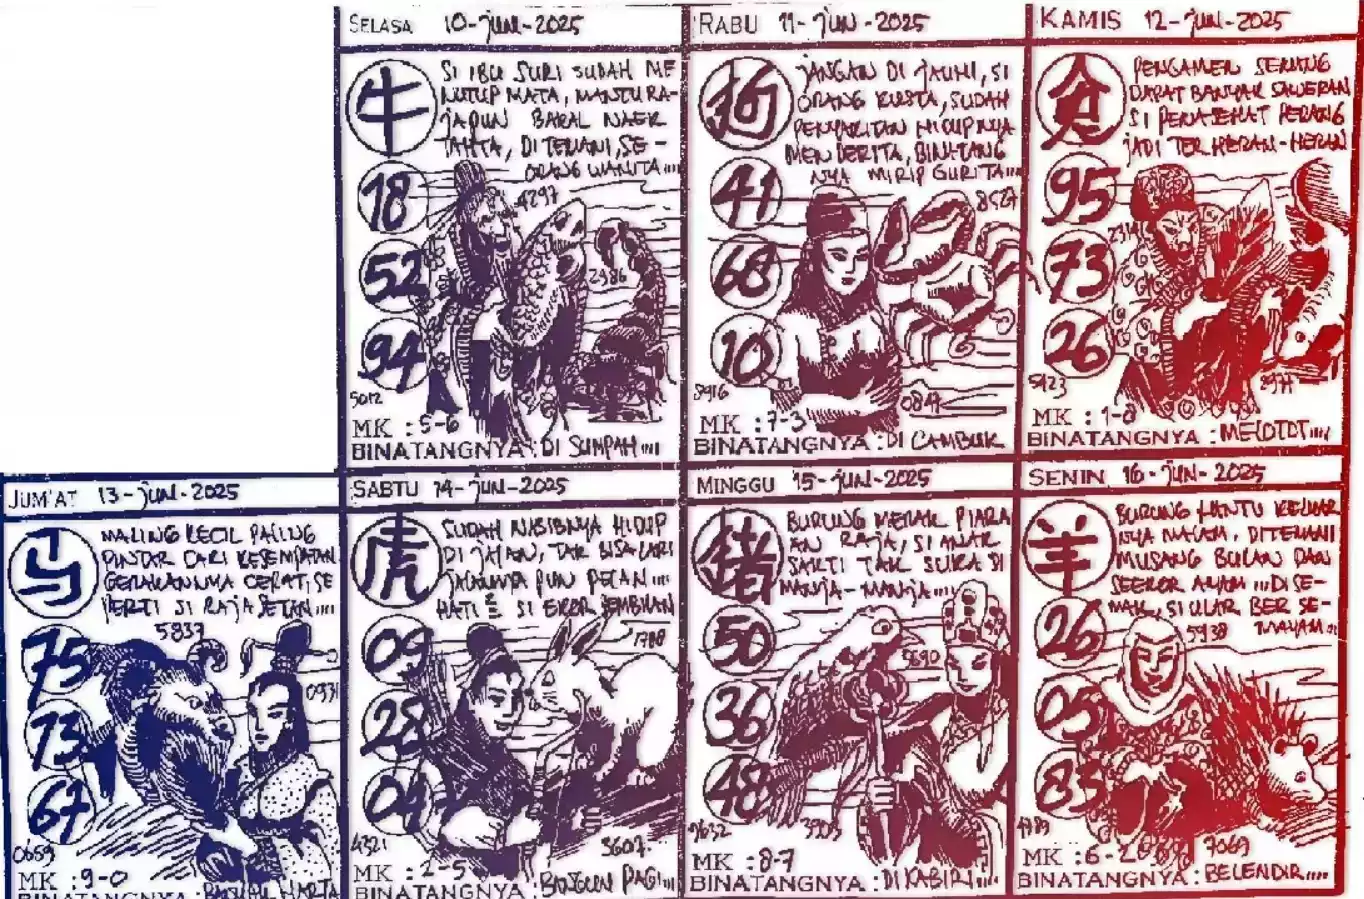 SELASA 10-JUNI-2025
牛
SI IBU SURI SUDAH ME
NUTUP MATA, MANTU RA-
JAPUN BAKAL NAEK
TAHTA, DITEMANI, SE-
ORANG WANITA....
18
4297
52
2986
94
5012
MK : 5-6
BINATANGNYA : DI SUMPAH....
RABU 11-JUN-2025
狗
JANGAN DI JAUHI, SI
ORANG KUSTA, SUDAH
PENYAKITAN HIDUPNYA
MENDERITA, BINATANG
NYA MIRIP GURITA....
41
8527
68
10
8916
0847
MK : 7-3
BINATANGNYA : DI CAMBUK
KAMIS 12-JUN-2025
PENGAMEN SENANG
DAPAT BANYAK SAWERAN
SI PENASEHAT PERANG
JADI TERHERAN-HERAN
95
73
26
5423
MK : 1-8
BINATANGNYA : MELOTOT....
JUM'AT 13-JUN-2025
马
MALING KECIL PALING
PINTAR CARI KESEMPATAN
GERAKANNYA CEPAT, SE
PERTI SI RAJA SETAN....
5837
75
0931
73
67
0659
MK : 9-0
BINATANGNYA :
SABTU 14-JUN-2025
虎
SUDAH NASIBNYA HIDUP
DI JALAN, TAK BISA LARI
JALANNYA PUN PELAN....
HATI2 SI EKOR SEMBILAN
09
1788
28
04
4321
3607
MK : 2-5
BINATANGNYA : BANGUN PAGI....
MINGGU 15-JUN-2025
猪
BURUNG MERAK PIARA
AN RAJA, SI ANAK
SAKTI TAK SUKA DI
MANJA-MANJA....
50
36
48
9632
MK : 8-7
BINATANGNYA : DI KABIRI....
SENIN 16-JUN-2025
羊
BURUNG HANTU KELUAR
NYA MALAM, DITEMANI
MUSANG BULAN DAN
SEEKOR AYAM...DI SE-
MAK, SI ULAR BER SE-
MAYAM..
26
5938
05
83
4789
7069
MK : 6-2
BINATANGNYA : BELENDIR....